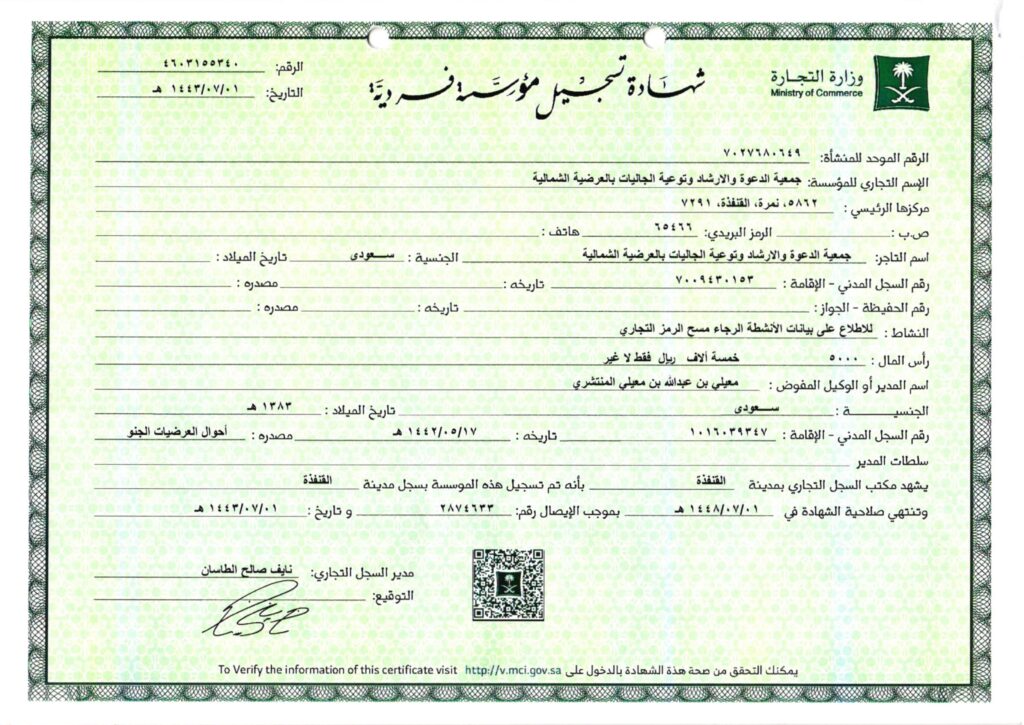 وزارة التجارة
Ministry of Commerce
شهادة تسجيل مؤسسة فردية
الرقم: ٤٦٠٣١٥٥٣٤٠
التاريخ: ١٤٤٣/٠٧/٠١ هـ
الرقم الموحد للمنشأة: ٧٠٢٧٦٨٠٦٤٩
الإسم التجاري للمؤسسة: جمعية الدعوة والارشاد وتوعية الجاليات بالعرضية الشمالية
مركزها الرئيسي : ٥٨٦٢، نمرة، القنفذة، ٧٢٩١
ص.ب : الرمز البريدي: ٦٥٤٦٦ هاتف :
اسم التاجر: جمعية الدعوة والارشاد وتوعية الجاليات بالعرضية الشمالية الجنسية : سـعودى تاريخ الميلاد :
رقم السجل المدني - الإقامة : ٧٠٠٩٤٣٠١٥٣ تاريخه : مصدره :
رقم الحفيظة - الجواز : تاريخه : مصدره :
النشاط : للاطلاع على بيانات الأنشطة الرجاء مسح الرمز التجاري
رأس المال : ٥٠٠٠ خمسة آلاف ريال فقط لا غير
اسم المدير أو الوكيل المفوض : معيلي بن عبدالله بن معيلي المنتشري
الجنسيـــــــة : سـعودى تاريخ الميلاد : ١٣٨٣ هـ
رقم السجل المدني - الإقامة : ١٠١٦٠٣٩٣٤٧ تاريخه : ١٤٤٢/٠٥/١٧ هـ مصدره : أحوال العرضيات الجنو
سلطات المدير
يشهد مكتب السجل التجاري بمدينة القنفذة بأنه تم تسجيل هذه الموسسة بسجل مدينة القنفذة
وتنتهي صلاحية الشهادة في ١٤٤٨/٠٧/٠١ هـ بموجب الإيصال رقم: ٢٨٧٤٦٣٣ و تاريخ : ١٤٤٣/٠٧/٠١ هـ
مدير السجل التجاري: نايف صالح الطاسان
التوقيع:
يمكنك التحقق من صحة هذة الشهادة بالدخول على http://v.mci.gov.sa To Verify the information of this certificate visit